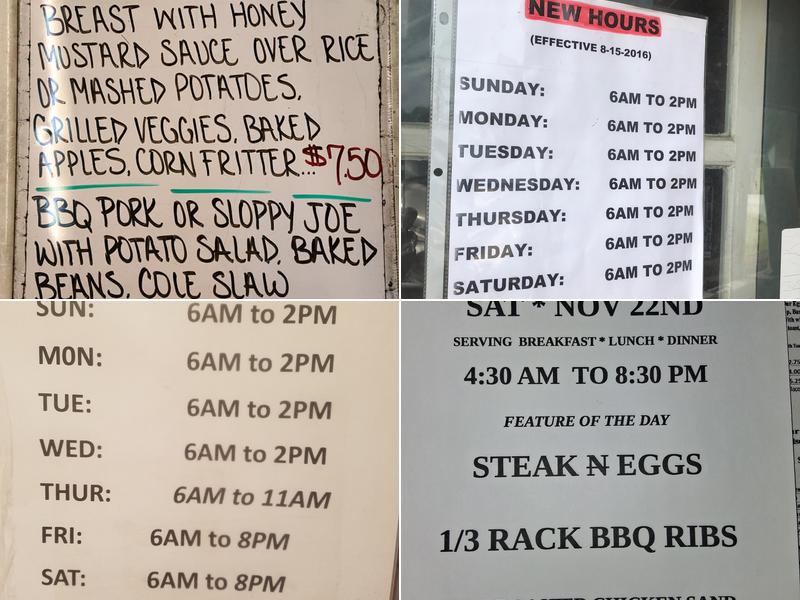 BREAST WITH HONEY
MUSTARD SAUCE OVER RICE
OR MASHED POTATOES,
GRILLED VEGGIES, BAKED
APPLES, CORN FRITTER...$7.50
BBQ PORK OR SLOPPY JOE
WITH POTATO SALAD, BAKED
BEANS, COLE SLAW
NEW HOURS
(EFFECTIVE 8-15-2016)
SUNDAY: 6AM TO 2PM
MONDAY: 6AM TO 2PM
TUESDAY: 6AM TO 2PM
WEDNESDAY: 6AM TO 2PM
THURSDAY: 6AM TO 2PM
FRIDAY: 6AM TO 2PM
SATURDAY: 6AM TO 2PM
SUN: 6AM to 2PM
MON: 6AM to 2PM
TUE: 6AM to 2PM
WED: 6AM to 2PM
THUR: 6AM to 11AM
FRI: 6AM to 8PM
SAT: 6AM to 8PM
SAT * NOV 22ND
SERVING BREAKFAST * LUNCH * DINNER
4:30 AM TO 8:30 PM
FEATURE OF THE DAY
STEAK N EGGS
1/3 RACK BBQ RIBS
CHICKEN SAND